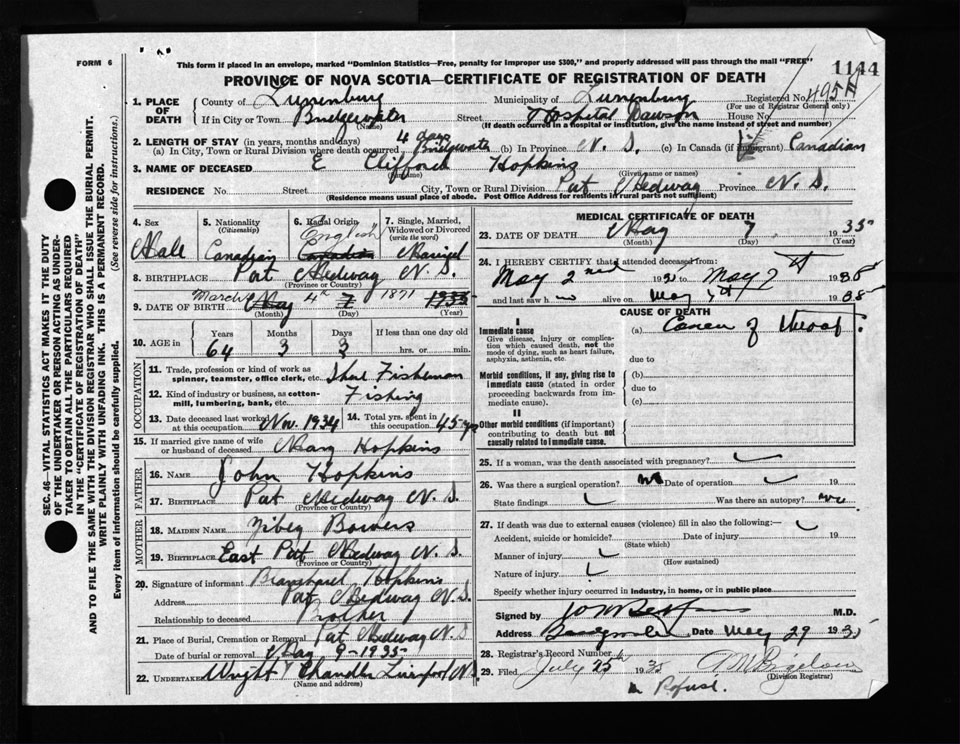 FORM 6
This form if placed in an envelope, marked "Dominion Statistics—Free, penalty for improper use $300," and properly addressed will pass through the mail "FREE"
PROVINCE OF NOVA SCOTIA—CERTIFICATE OF REGISTRATION OF DEATH
1144
1. PLACE OF DEATH
County of Lunenburg Municipality of Lunenburg Registered No. 495
(For use of Registrar General only)
If in City or Town Bridgewater Street Hospital Dawson House No.
(Name) (If death occurred in a hospital or institution, give name instead of street and number)
2. LENGTH OF STAY (in years, months and days)
(a) In City, Town or Rural Division where death occurred 4 days Bridgewater (b) In Province N. S. (c) In Canada (if immigrant) Canadian
3. NAME OF DECEASED E Clifford Hopkins
(Given name or names)
RESIDENCE No. Street City, Town or Rural Division Port Medway Province N. S.
(Residence means usual place of abode. Post Office Address for residents in rural parts not sufficient)
4. Sex Male
5. Nationality (Citizenship) Canadian
6. Racial Origin English Canadian
7. Single, Married, Widowed or Divorced (write the word) Married
8. BIRTHPLACE Port Medway N. S.
(Province or Country)
9. DATE OF BIRTH March May 4th 7 1871 1935
(Month) (Day) (Year)
10. AGE in Years 64 Months 3 Days 3 If less than one day old hrs. or min.
OCCUPATION
11. Trade, profession or kind of work as spinner, teamster, office clerk, etc. Fisherman
12. Kind of industry or business, as cotton-mill, lumbering, bank, etc. Fishing
13. Date deceased last worked at this occupation Nov. 1934
14. Total yrs. spent in this occupation 45 yrs
15. If married give name of wife or husband of deceased Mary Hopkins
FATHER
16. NAME John Hopkins
17. BIRTHPLACE Port Medway N. S.
(Province or Country)
MOTHER
18. MAIDEN NAME Bowers
19. BIRTHPLACE East Port Medway N. S.
(Province or Country)
20. Signature of informant Blanchard Hopkins
Address Port Medway N. S.
Relationship to deceased Brother
21. Place of Burial, Cremation or Removal Port Medway N. S.
Date of burial or removal May 9-1935
22. UNDERTAKER Wright Chandler Liverpool N. S.
(Name and address)
MEDICAL CERTIFICATE OF DEATH
23. DATE OF DEATH May 7 1935
(Month) (Day) (Year)
24. I HEREBY CERTIFY that I attended deceased from:
May 2nd 193 to May 7th 1935
and last saw h alive on May 1935
CAUSE OF DEATH
I
Immediate cause
Give disease, injury or complication which caused death, not the mode of dying, such as heart failure, asphyxia, asthenia, etc.
(a) Cancer of throat.
due to
Morbid conditions, if any, giving rise to immediate cause (stated in order proceeding backwards from immediate cause).
(b)
due to
(c)
II
Other morbid conditions (if important) contributing to death but not causally related to immediate cause.
25. If a woman, was the death associated with pregnancy?
26. Was there a surgical operation? no Date of operation 19
State findings Was there an autopsy? no
27. If death was due to external causes (violence) fill in also the following:—
Accident, suicide or homicide? Date of injury 19
(State which)
Manner of injury
(How sustained)
Nature of injury
Specify whether injury occurred in industry, in home, or in public place
Signed by M.D.
Address Bridgewater Date May 29 1935
28. Registrar's Record Number
29. Filed July 25th 1935 Bigelow
(Division Registrar)
SEC. 46—VITAL STATISTICS ACT MAKES IT THE DUTY
OF THE UNDERTAKER OR PERSON ACTING AS UNDERTAKER TO OBTAIN ALL THE PARTICULARS REQUIRED
IN THE "CERTIFICATE OF REGISTRATION OF DEATH"
AND TO FILE THE SAME WITH THE DIVISION REGISTRAR WHO SHALL ISSUE THE BURIAL PERMIT.
WRITE PLAINLY WITH UNFADING INK. THIS IS A PERMANENT RECORD.
Every item of information should be carefully supplied. (See reverse side for instructions.)